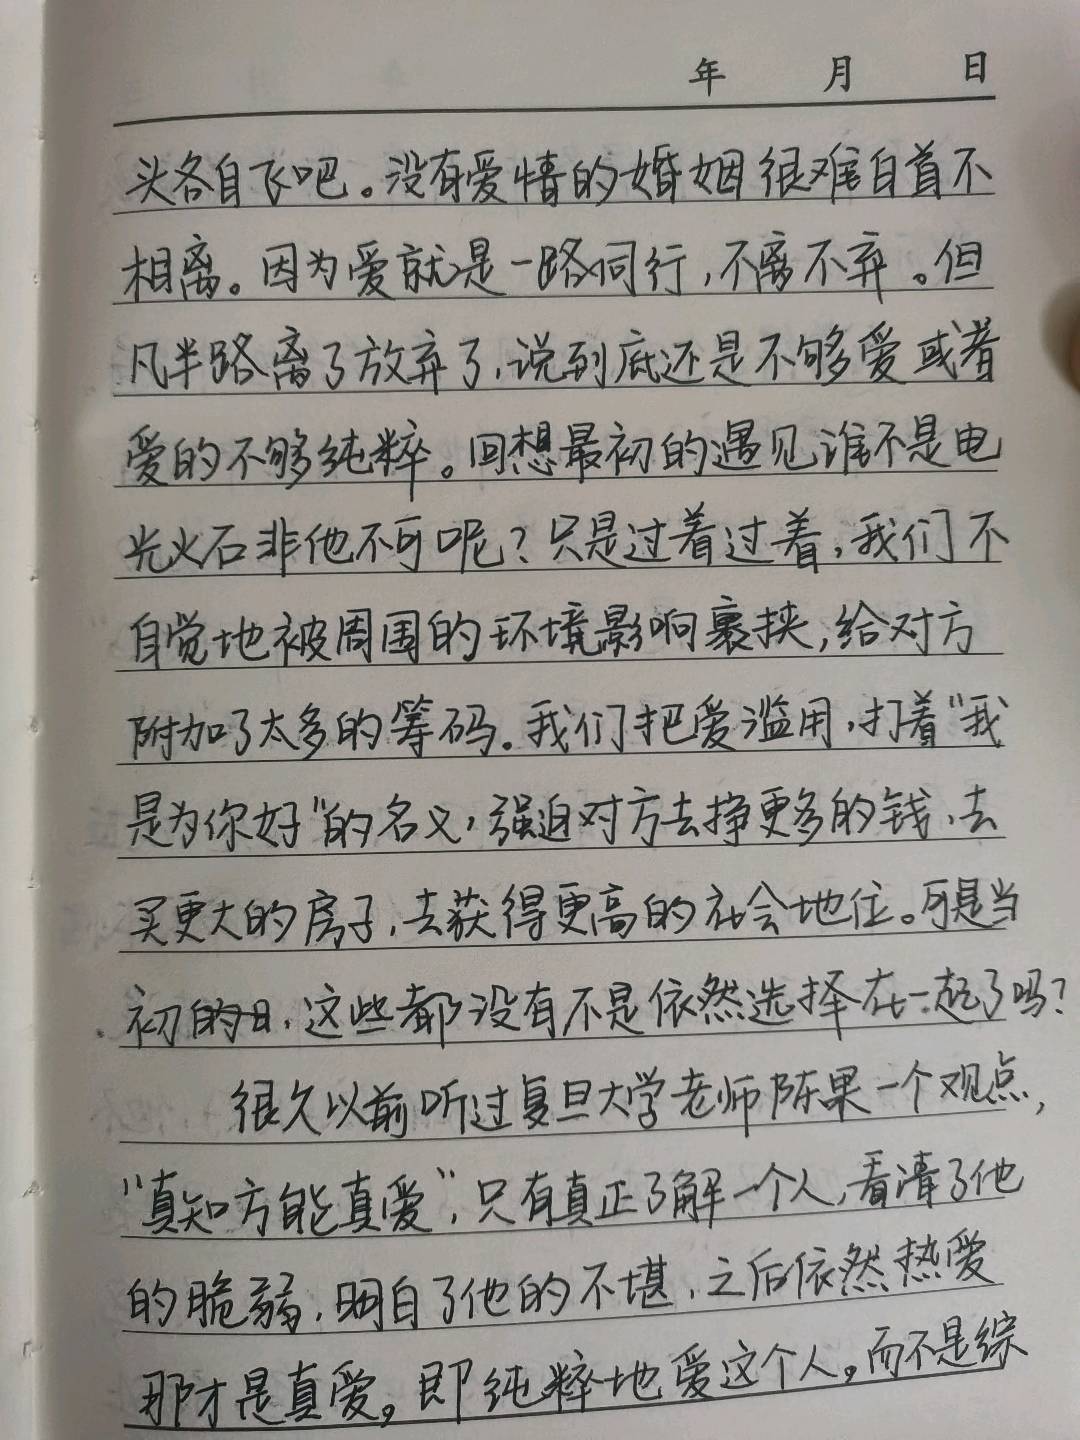 年 月 日
头各自飞吧。没有爱情的婚姻很难白首不
相离。因为爱就是一路同行,不离不弃。但
凡半路离了放弃了,说到底还是不够爱或者
爱的不够纯粹。回想最初的遇见谁不是电
光火石非他不可呢?只是过着过着,我们不
自觉地被周围的环境影响裹挟,给对方
附加了太多的筹码。我们把爱滥用,打着"我
是为你好"的名义,强迫对方去挣更多的钱,去
买更大的房子,去获得更高的社会地位。可是当
初的,这些都没有不是依然选择在一起了吗?
很久以前听过复旦大学老师陈果一个观点,
"真知方能真爱",只有真正了解一个人,看清了他
的脆弱,明白了他的不堪,之后依然热爱
那才是真爱。即纯粹地爱这个人。而不是综